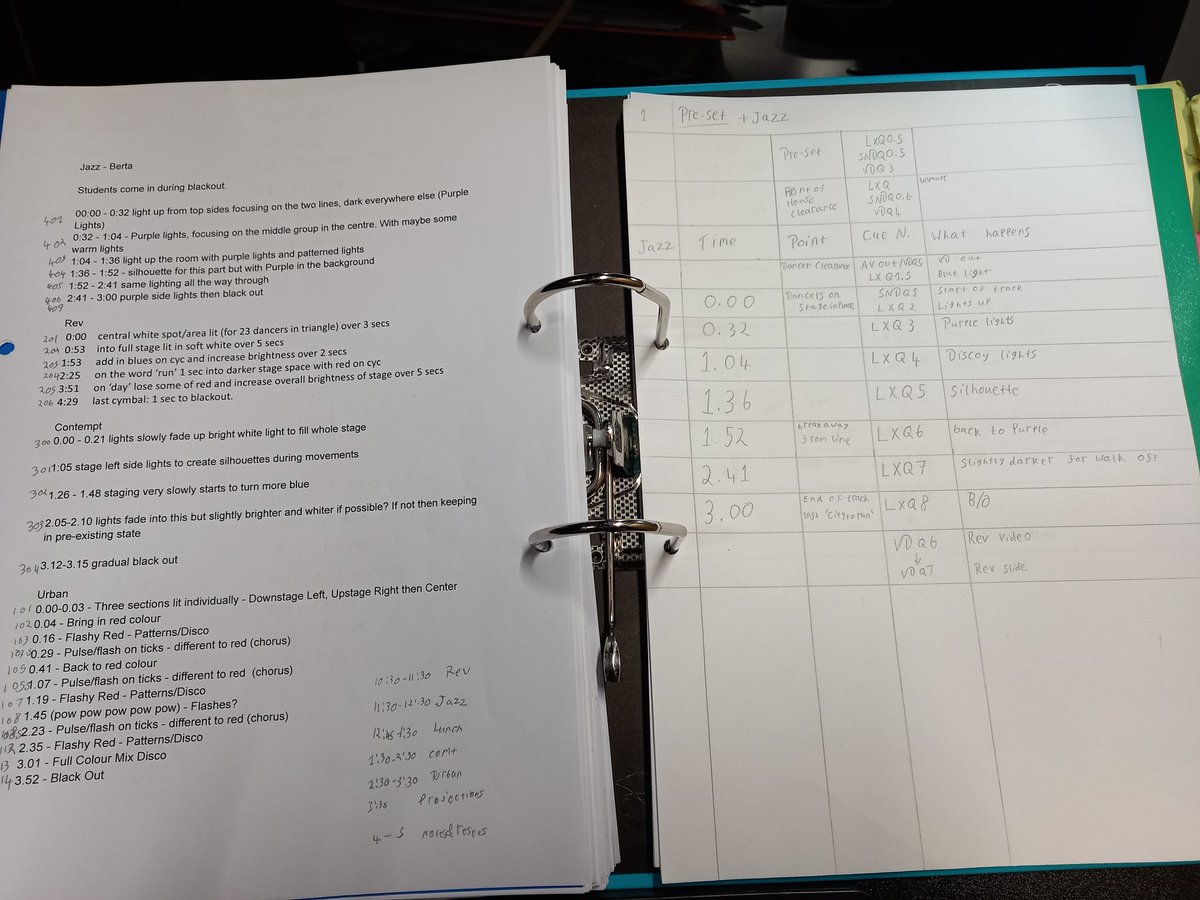 Jazz - Berta
Students come in during blackout.
401 00:00 - 0:32 light up from top sides focusing on the two lines, dark everywhere else (Purple
Lights)
402 0:32 - 1:04 - Purple lights, focusing on the middle group in the centre. With maybe some
warm lights
403 1:04 - 1:36 light up the room with purple lights and patterned lights
404 1:36 - 1:52 - silhouette for this part but with Purple in the background
405 1:52 - 2:41 same lighting all the way through
406 2:41 - 3:00 purple side lights then blackout
Rev
201 0:00 central white spot/area lit (for 23 dancers in triangle) over 3 secs
202 0:53 into full stage lit in soft white over 5 secs
203 1:53 add in blues on cyc and increase brightness over 2 secs
204 2:25 on the word 'run' 1 sec into darker stage space with red on cyc
205 3:51 on 'day' lose some of red and increase overall brightness of stage over 5 secs
206 4:29 last cymbal: 1 sec to blackout.
Contempt
300 0.00 - 0.21 lights slowly fade up bright white light to fill whole stage
301 1:05 stage left side lights to create silhouettes during movements
302 1.26 - 1.48 staging very slowly starts to turn more blue
303 2.05-2.10 lights fade into this but slightly brighter and whiter if possible? If not then keeping
in pre-existing state
304 3.12-3.15 gradual black out
Urban
101 0.00-0.03 - Three sections lit individually - Downstage Left, Upstage Right then Center
102 0.04 - Bring in red colour
103 0.16 - Flashy Red - Patterns/Disco
0.29 - Pulse/flash on ticks - different to red (chorus)
105 0.41 - Back to red colour
1.07 - Pulse/flash on ticks - different to red (chorus)
107 1.19 - Flashy Red - Patterns/Disco
108 1.45 (pow pow pow pow pow) - Flashes?
2.23 - Pulse/flash on ticks - different to red (chorus)
112 2.35 - Flashy Red - Patterns/Disco
13 3.01 - Full Colour Mix Disco
14 3.52 - Black Out
10:30-11:30 Rev
11:30-12:30 Jazz
Lunch
1:30-2:30 comt
2:30-3:30 Urban
3:30 Projections
4-5 notes
1 Pre-set + Jazz
Pre-set LXQ0.5
SNDQ0.5
VDQ3
Front of House Clearance LXQ unmute
SNDQ0.6
VDQ4
Jazz Time Point Cue N. What happens
Dancer Clearance AV out/VDQ5 VD out
LXQ1.5 Blue light
0.00 Dancers on Stage in place SNDQ1 Start of track
LXQ2 Lights up
0.32 LXQ3 Purple lights
1.04 LXQ4 Discoy lights
1.36 LXQ5 Silhouette
1.52 breakaway from line LXQ6 back to Purple
2.41 LXQ7 Slightly darker for walk off
3.00 End of track last 'City to run' LXQ8 B/O
VDQ6 Rev video
↓
VDQ7 Rev slide